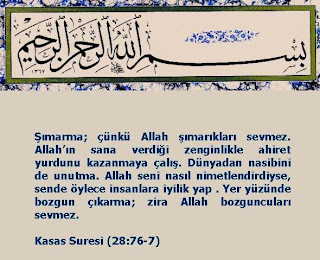 بسم الله الرحمن الرحيم
Şımarma; çünkü Allah şımarıkları sevmez.
Allah’ın sana verdiği zenginlikle ahiret
yurdunu kazanmaya çalış. Dünyadan nasibini
de unutma. Allah seni nasıl nimetlendirdiyse,
sende öylece insanlara iyilik yap . Yer yüzünde
bozgun çıkarma; zira Allah bozguncuları
sevmez.
Kasas Suresi (28:76-7)